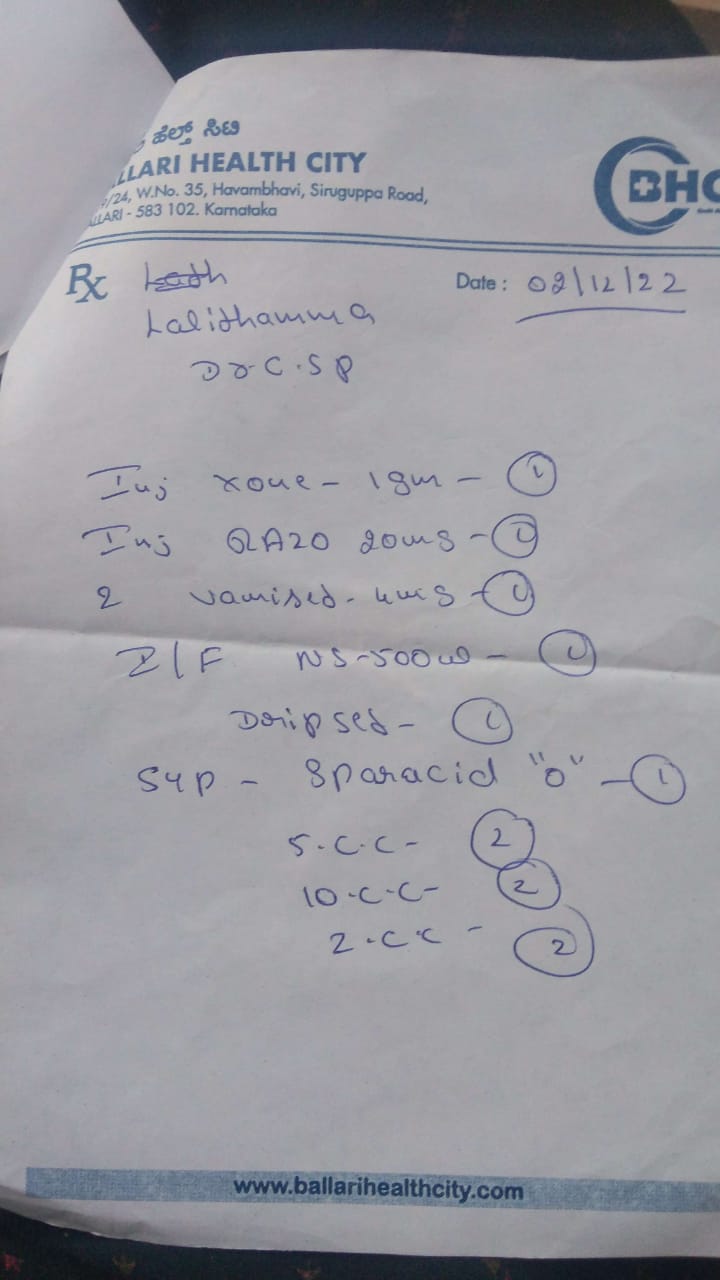 ಹೆಲ್ತ್ ಸಿಟಿ
LLARI HEALTH CITY
/24, W.No. 35, Havambhavi, Siruguppa Road,
LLARI - 583 102. Karnataka
BHC
Rx
Date : 02/12/22
Lalithamma
Dr C.SP
Inj xone - 1gm - 1
Inj RAZO 20mg - 1
2 vamised - 4mg - 1
I/F NS - 500 - 1
Dripset - 1
Syp - Sparacid "O" - 1
5.C.C - 2
10.C.C - 2
2.CC - 2
www.ballarihealthcity.com